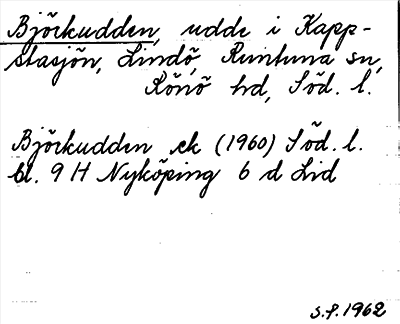 Björkudden, udde i Kapp-
stasjön, Lindö, Runtuna sn,
Rönö hd, Söd. l.
Björkudden ek (1960) Söd. l.
bl. 9 H Nyköping 6 d Lid
S.P. 1962